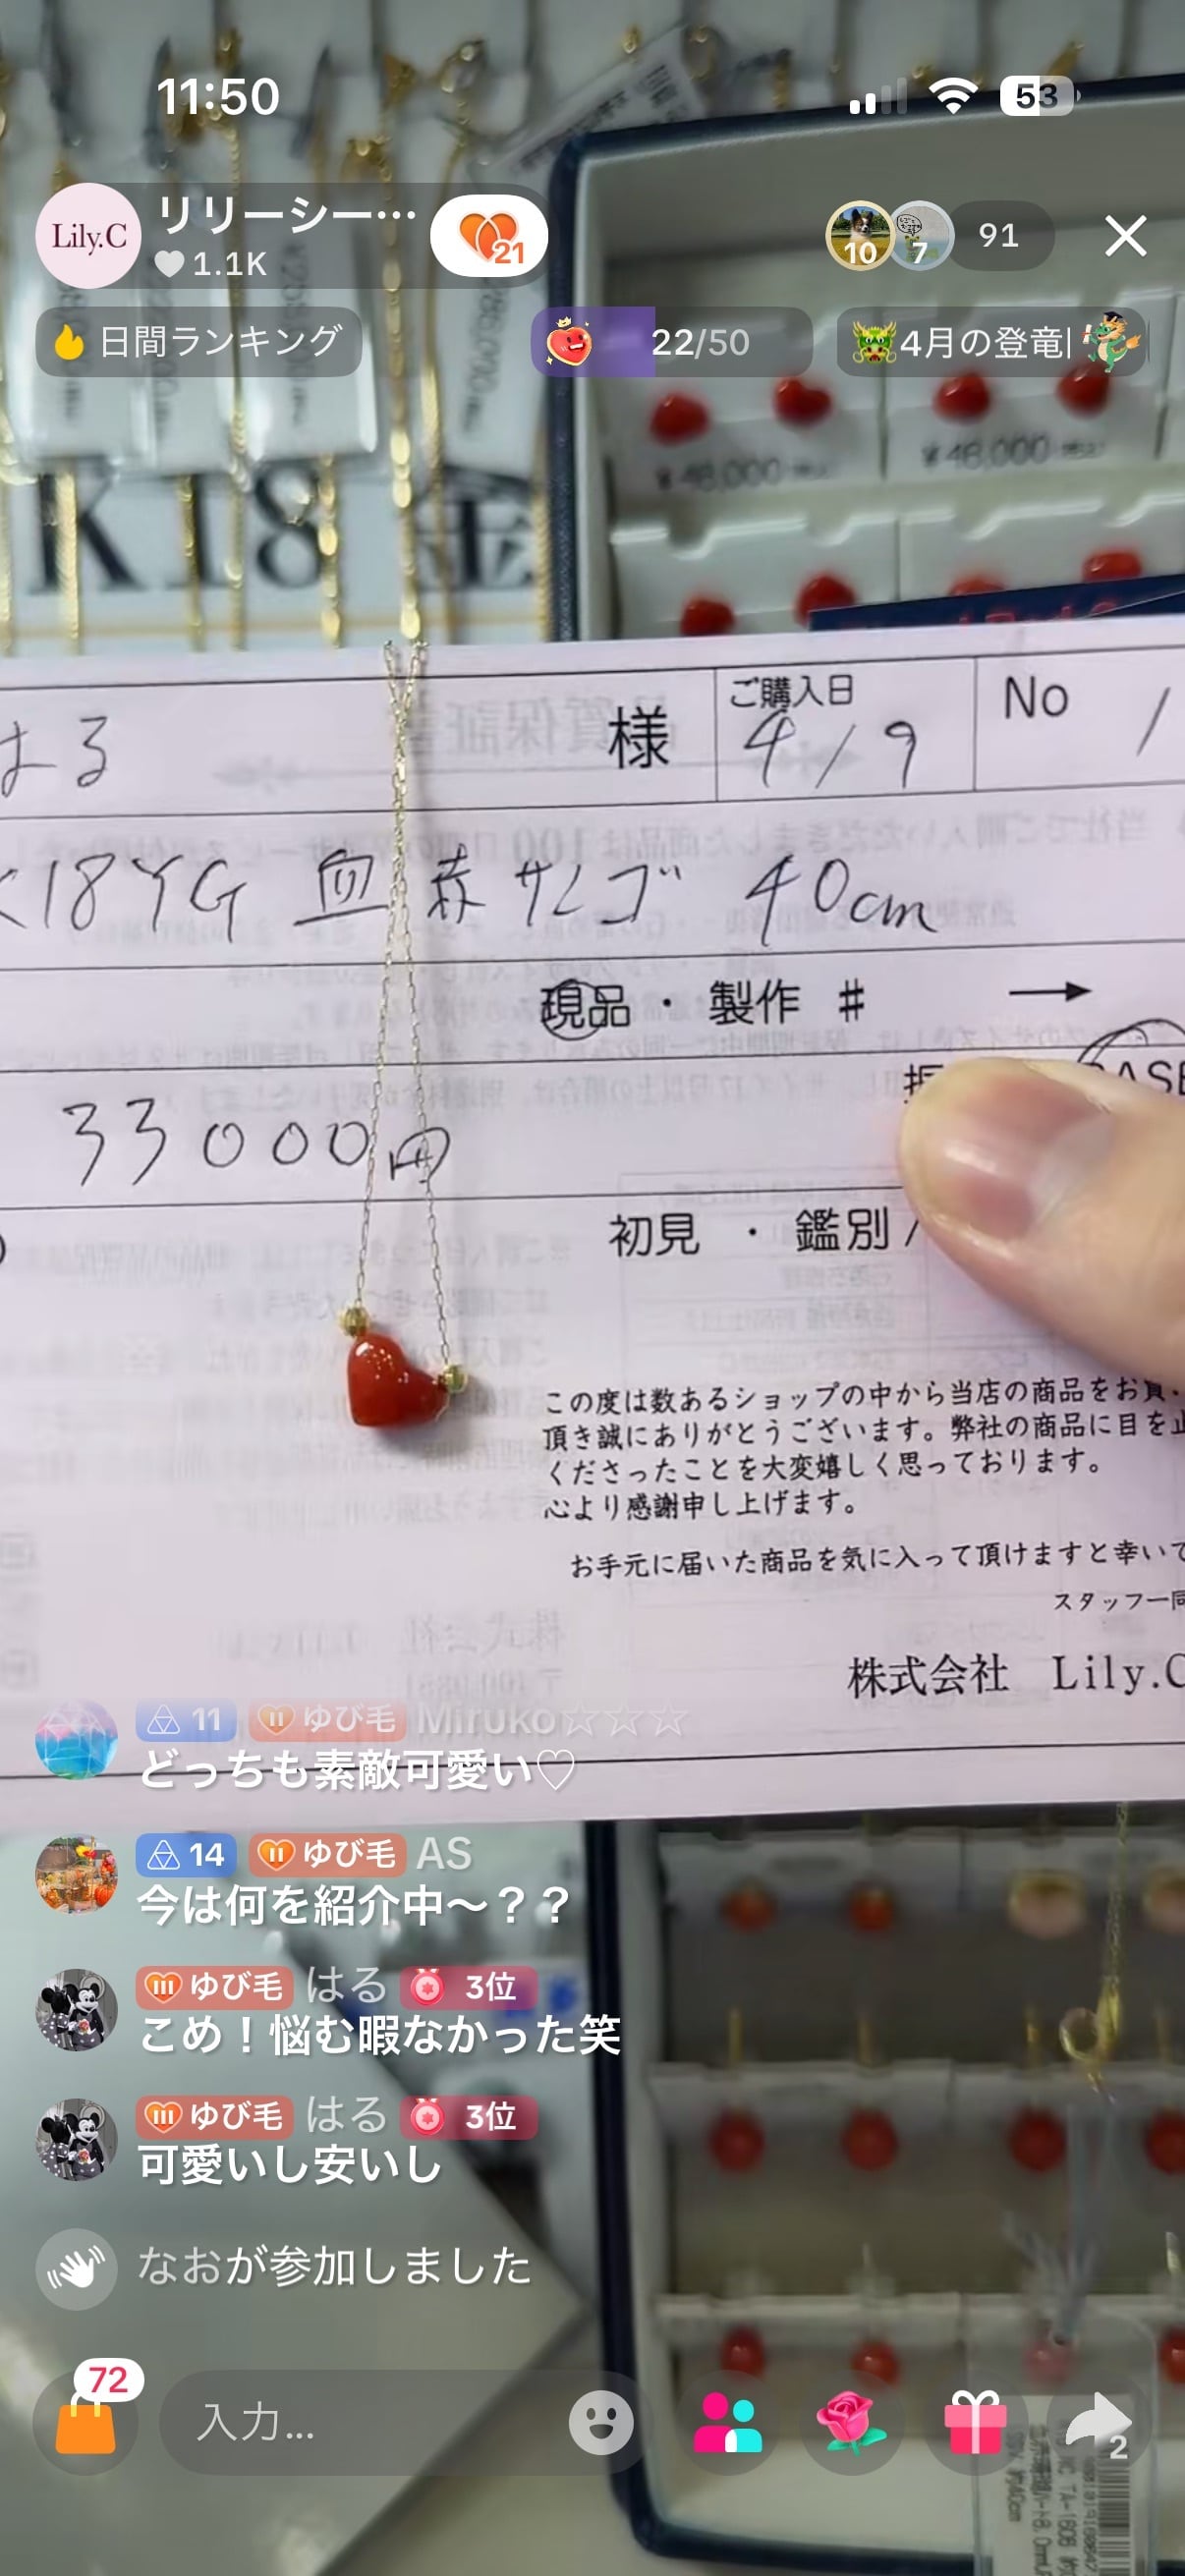 11:50
53
Lily.C
リリーシー…
1.1K
21
10
7
91
日間ランキング
22/50
4月の登竜
¥48,000
¥48,000
K18 金
はる 様
ご購入日
4/9
No
K18YG 血赤サンゴ 40cm
現品・製作 #
→
33000円
初見・鑑別/
この度は数あるショップの中から当店の商品をお買
頂き誠にありがとうございます。弊社の商品に目を止
くださったことを大変嬉しく思っております。
心より感謝申し上げます。
お手元に届いた商品を気に入って頂けますと幸いで
スタッフ一同
株式会社 Lily.C
11 II ゆび毛 Miruko☆☆☆
どっちも素敵可愛い♡
14 II ゆび毛 AS
今は何を紹介中〜？？
III ゆび毛 はる 3位
こめ！悩む暇なかった笑
III ゆび毛 はる 3位
可愛いし安いし
なおが参加しました
72
入力...
2